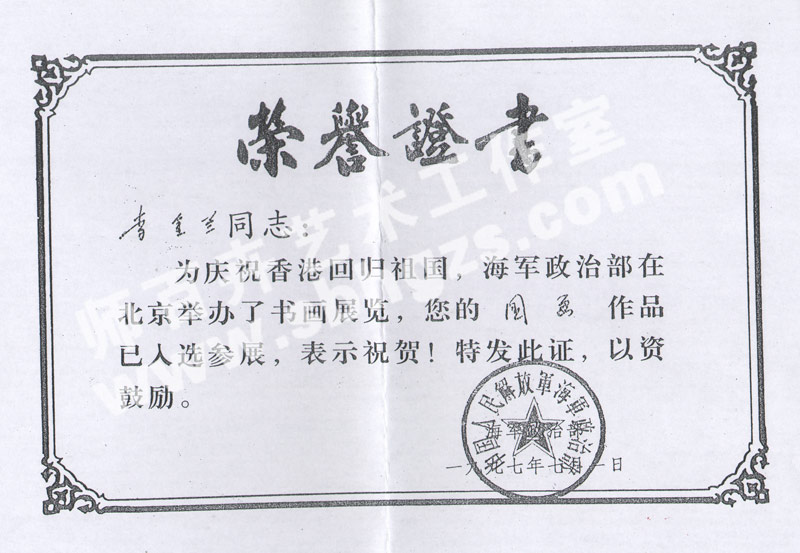 榮譽證书
李金兰同志：
为庆祝香港回归祖国，海军政治部在
北京举办了书画展览，您的 国画 作品
已入选参展，表示祝贺！特发此证，以资
鼓励。
中国人民解放軍海軍政治部
海军政治部
一九九七年七月一日
艺术工作室